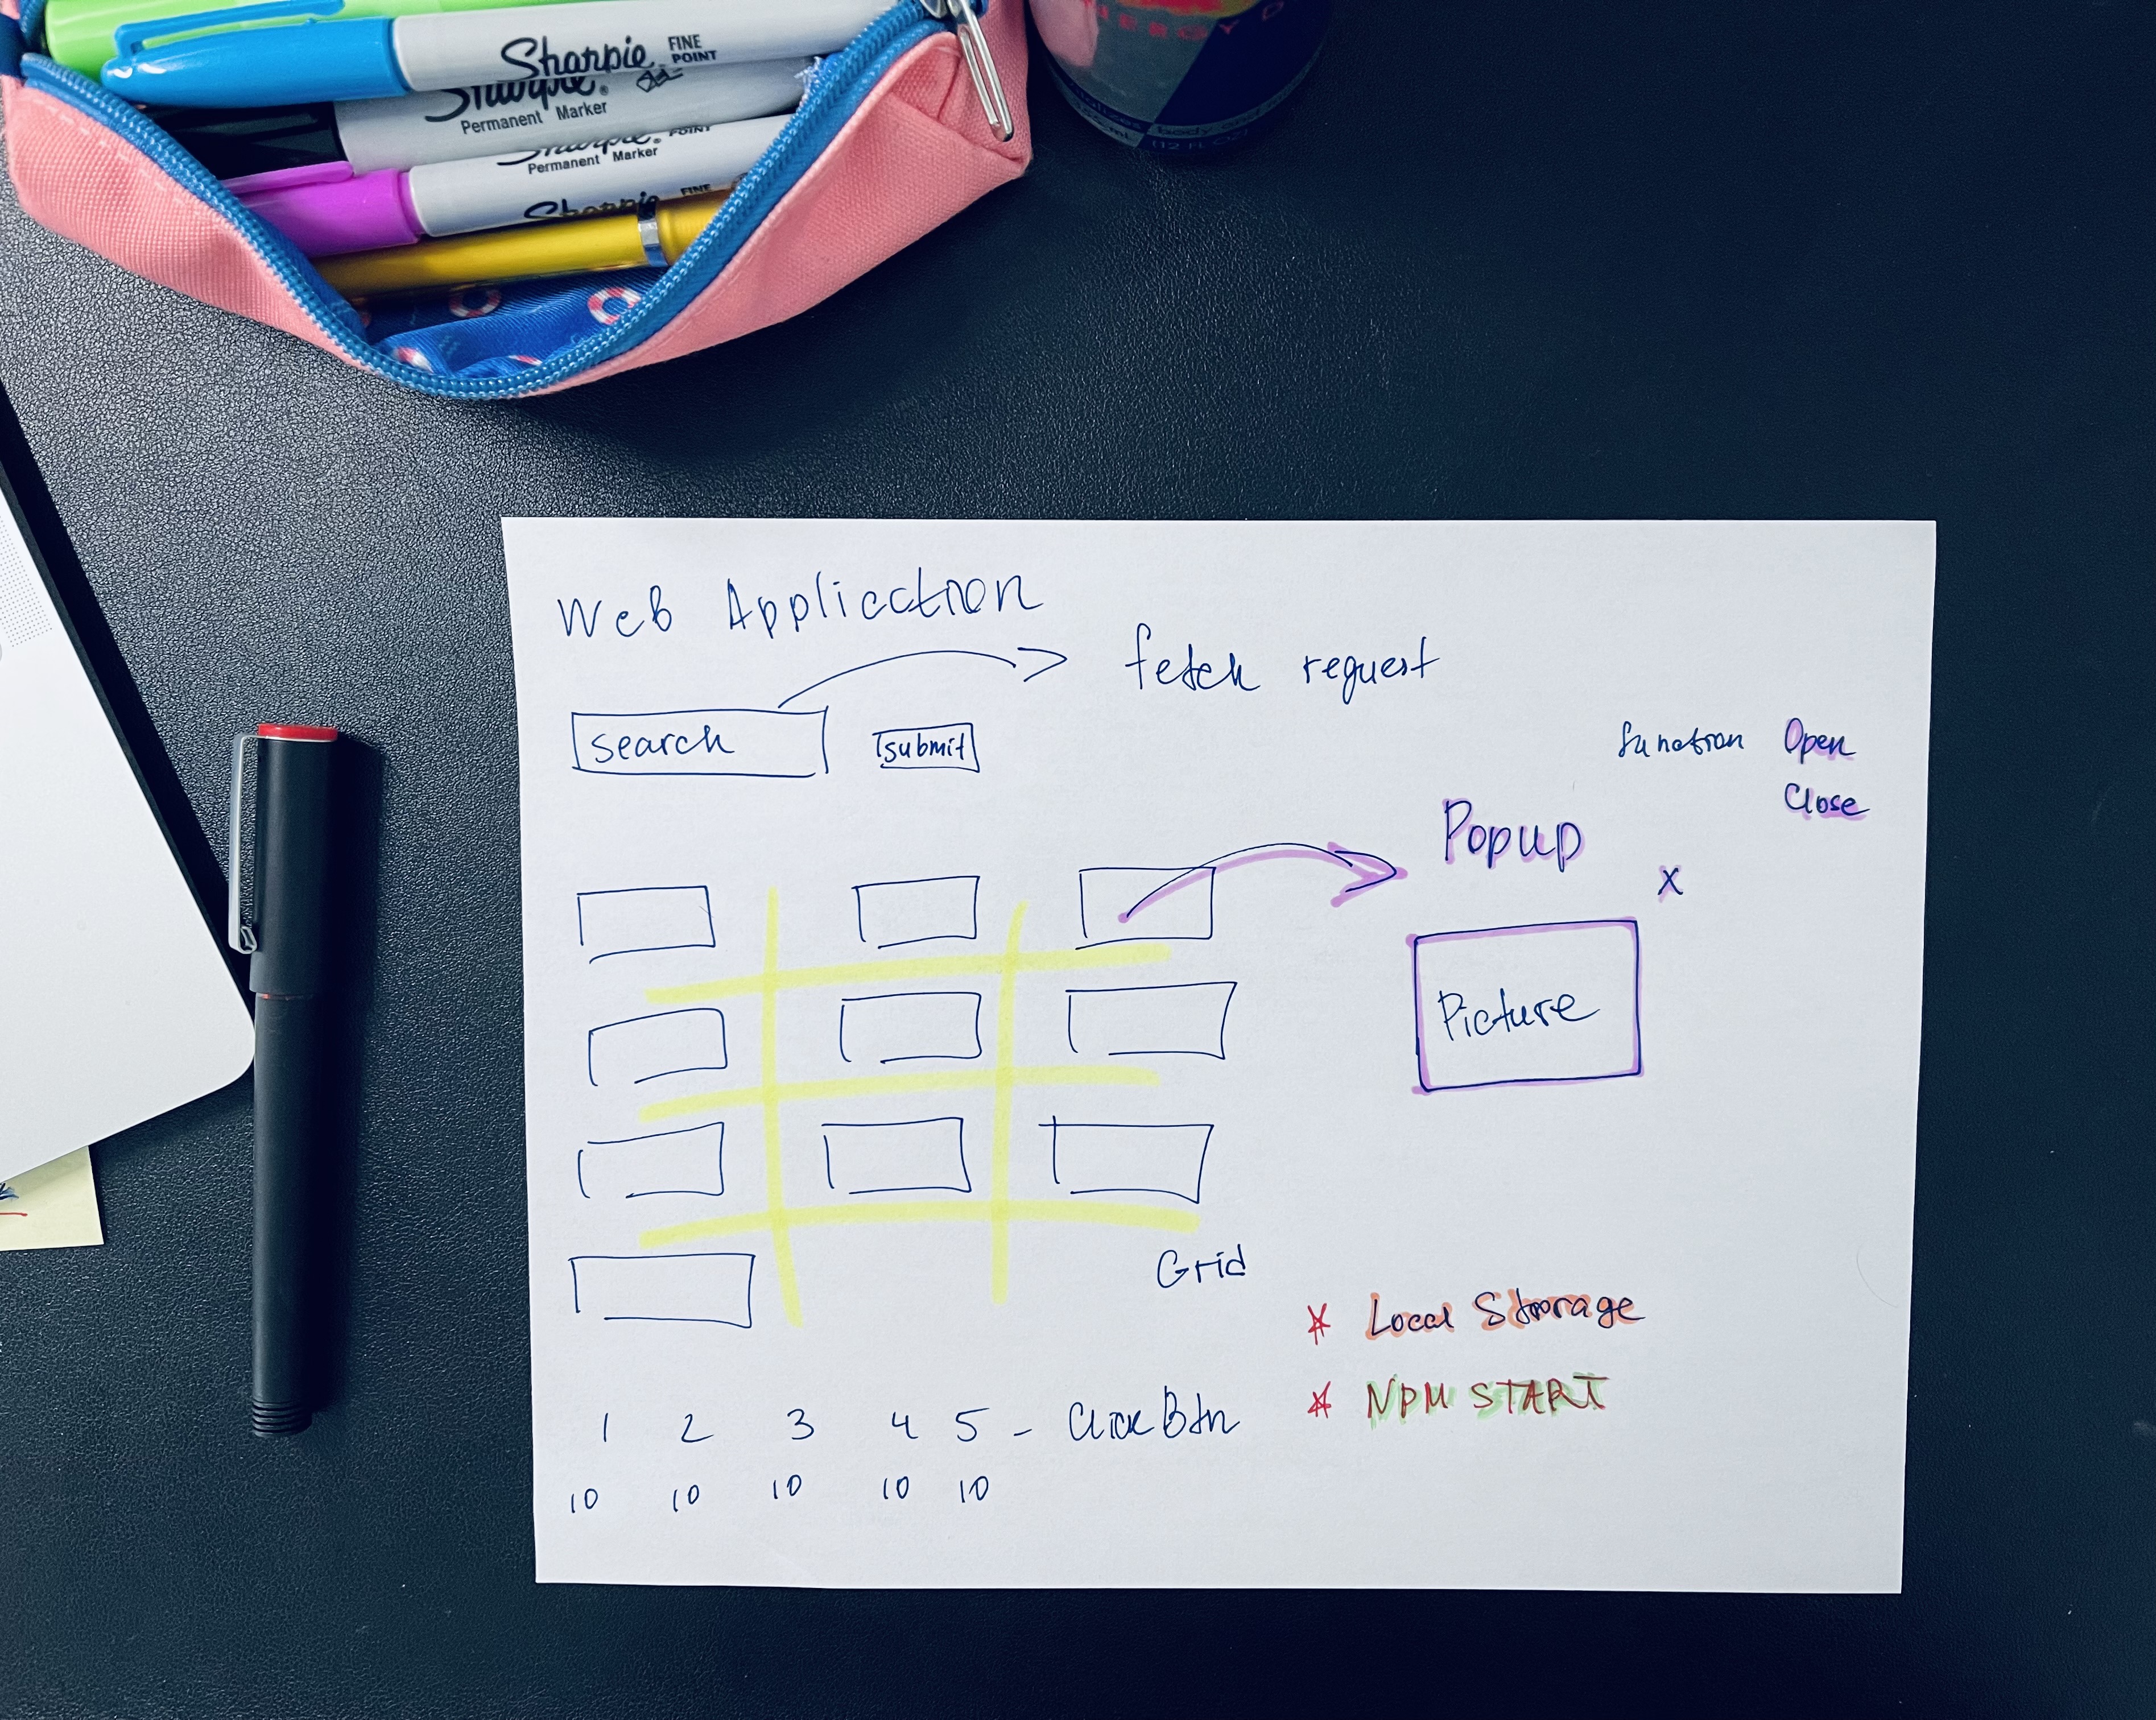 Sharpie FINE POINT
Sharpie
Permanent Marker
Sharpie POINT
Permanent Marker
Sharpie FINE
(12 FL OZ)
Web Application
fetch request
search
submit
function Open
Close
Popup
X
Picture
Grid
* Local Storage
* NPM START
1 2 3 4 5 - Click Btn
10 10 10 10 10